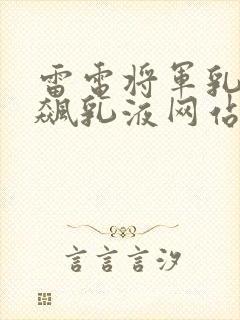 雷电将军乳
飙乳液网站
言言言汐